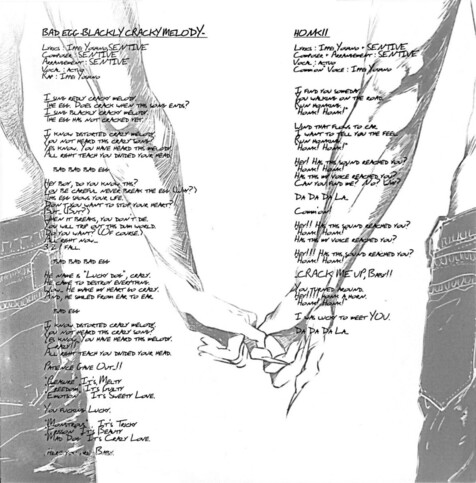 BAD EGG BLACKLY CRACKY MELODY.
LYRICS : IPPEI YOKOYO SENTIVE
COMPOSER : SENTIVE
ARRANGEMENT : SENTIVE
VOCAL : ACTUO
RAP : IPPEI
I SING REDLY CRACKY MELODY.
THE EGG DOES CRACK WHEN THE SONG ENDS?
I SING BLACKLY CRACKY MELODY.
THE EGG HAS NOT CRACKED YET.
I KNOW DISTORTED CRAZY MELODY.
YOU NOT HEARD THIS CRAZY SONG?
YES KNOW. YOU HAVE HEARD THE MELODY.
ALL RIGHT TEACH YOU DIVIDED YOUR HEAD.
BAD BAD BAD EGG
HEY BOY, DO YOU KNOW THIS?
YOU BE CAREFUL NEVER BREAK THE EGG (WHY?)
THE EGG SHOWS YOUR LIFE.
DON'T YOU WANT TO STOP YOUR HEART?
BUT, (BUT?)
WHEN IT BREAKS, YOU DON'T DIE.
YOU WILL TRIP OUT THE DIM WORLD.
DO YOU WANT? (OF COURSE.)
ALL RIGHT NOW...
3.2.1 FALL.
BAD BAD BAD EGG
HE NAME IS "LUCKY DOG", CRAZY.
HE CAME TO DESTROY EVERYTHING.
WOW, HE MAKE MY HEART SO CRAZY.
AND, HE SMILED FROM EAR TO EAR.
BAD EGG
I KNOW DISTORTED CRAZY MELODY.
YOU NOT HEARD THIS CRAZY SONG?
YES KNOW. YOU HAVE HEARD THE MELODY.
CRAZY!!
ALL RIGHT TEACH YOU DIVIDED YOUR HEAD.
PATIENCE GAVE OUT!!
IT'S MELTY
FREEDOM IT'S GUILTY
EMOTION IT'S SWEETY LOVE.
YOU FUCKING LUCKY.
"MONSTROUS" IT'S TRICKY
IT'S BEAUTY
"MAD DOG" IT'S CRAZY LOVE.
BABY.
HONK!!
LYRICS : IPPEI YOKOYO + SENTIVE
COMPOSER + ARRANGEMENT : SENTIVE
VOCAL : ACTUO
COMMON VOICE : IPPEI
I FIND YOU SOMEDAY.
YOU WALKING ON THE ROAD.
HONK! HONK!"
WIND THAT FLOWS TO EAR.
I WANT TO TELL YOU THE FEEL.
HONK! HONK!"
HEY! HAS THE SOUND REACHED YOU?
HONK! HONK!
HAS THE MY VOICE REACHED YOU?
CAN YOU FIND ME? NO?
DA DA DA LA.
COMMON!
HEY!! HAS THE SOUND REACHED YOU?
HONK! HONK!
HAS THE MY VOICE REACHED YOU?
HEY!!! HAS THE SOUND REACHED YOU?
HONK! HONK!
CRACK ME UP, BABY!!
YOU TURNED AROUND.
HEY!!!! HONK A HORN.
HONK! HONK!
I WAS LUCKY TO MEET YOU.
DA DA DA LA.